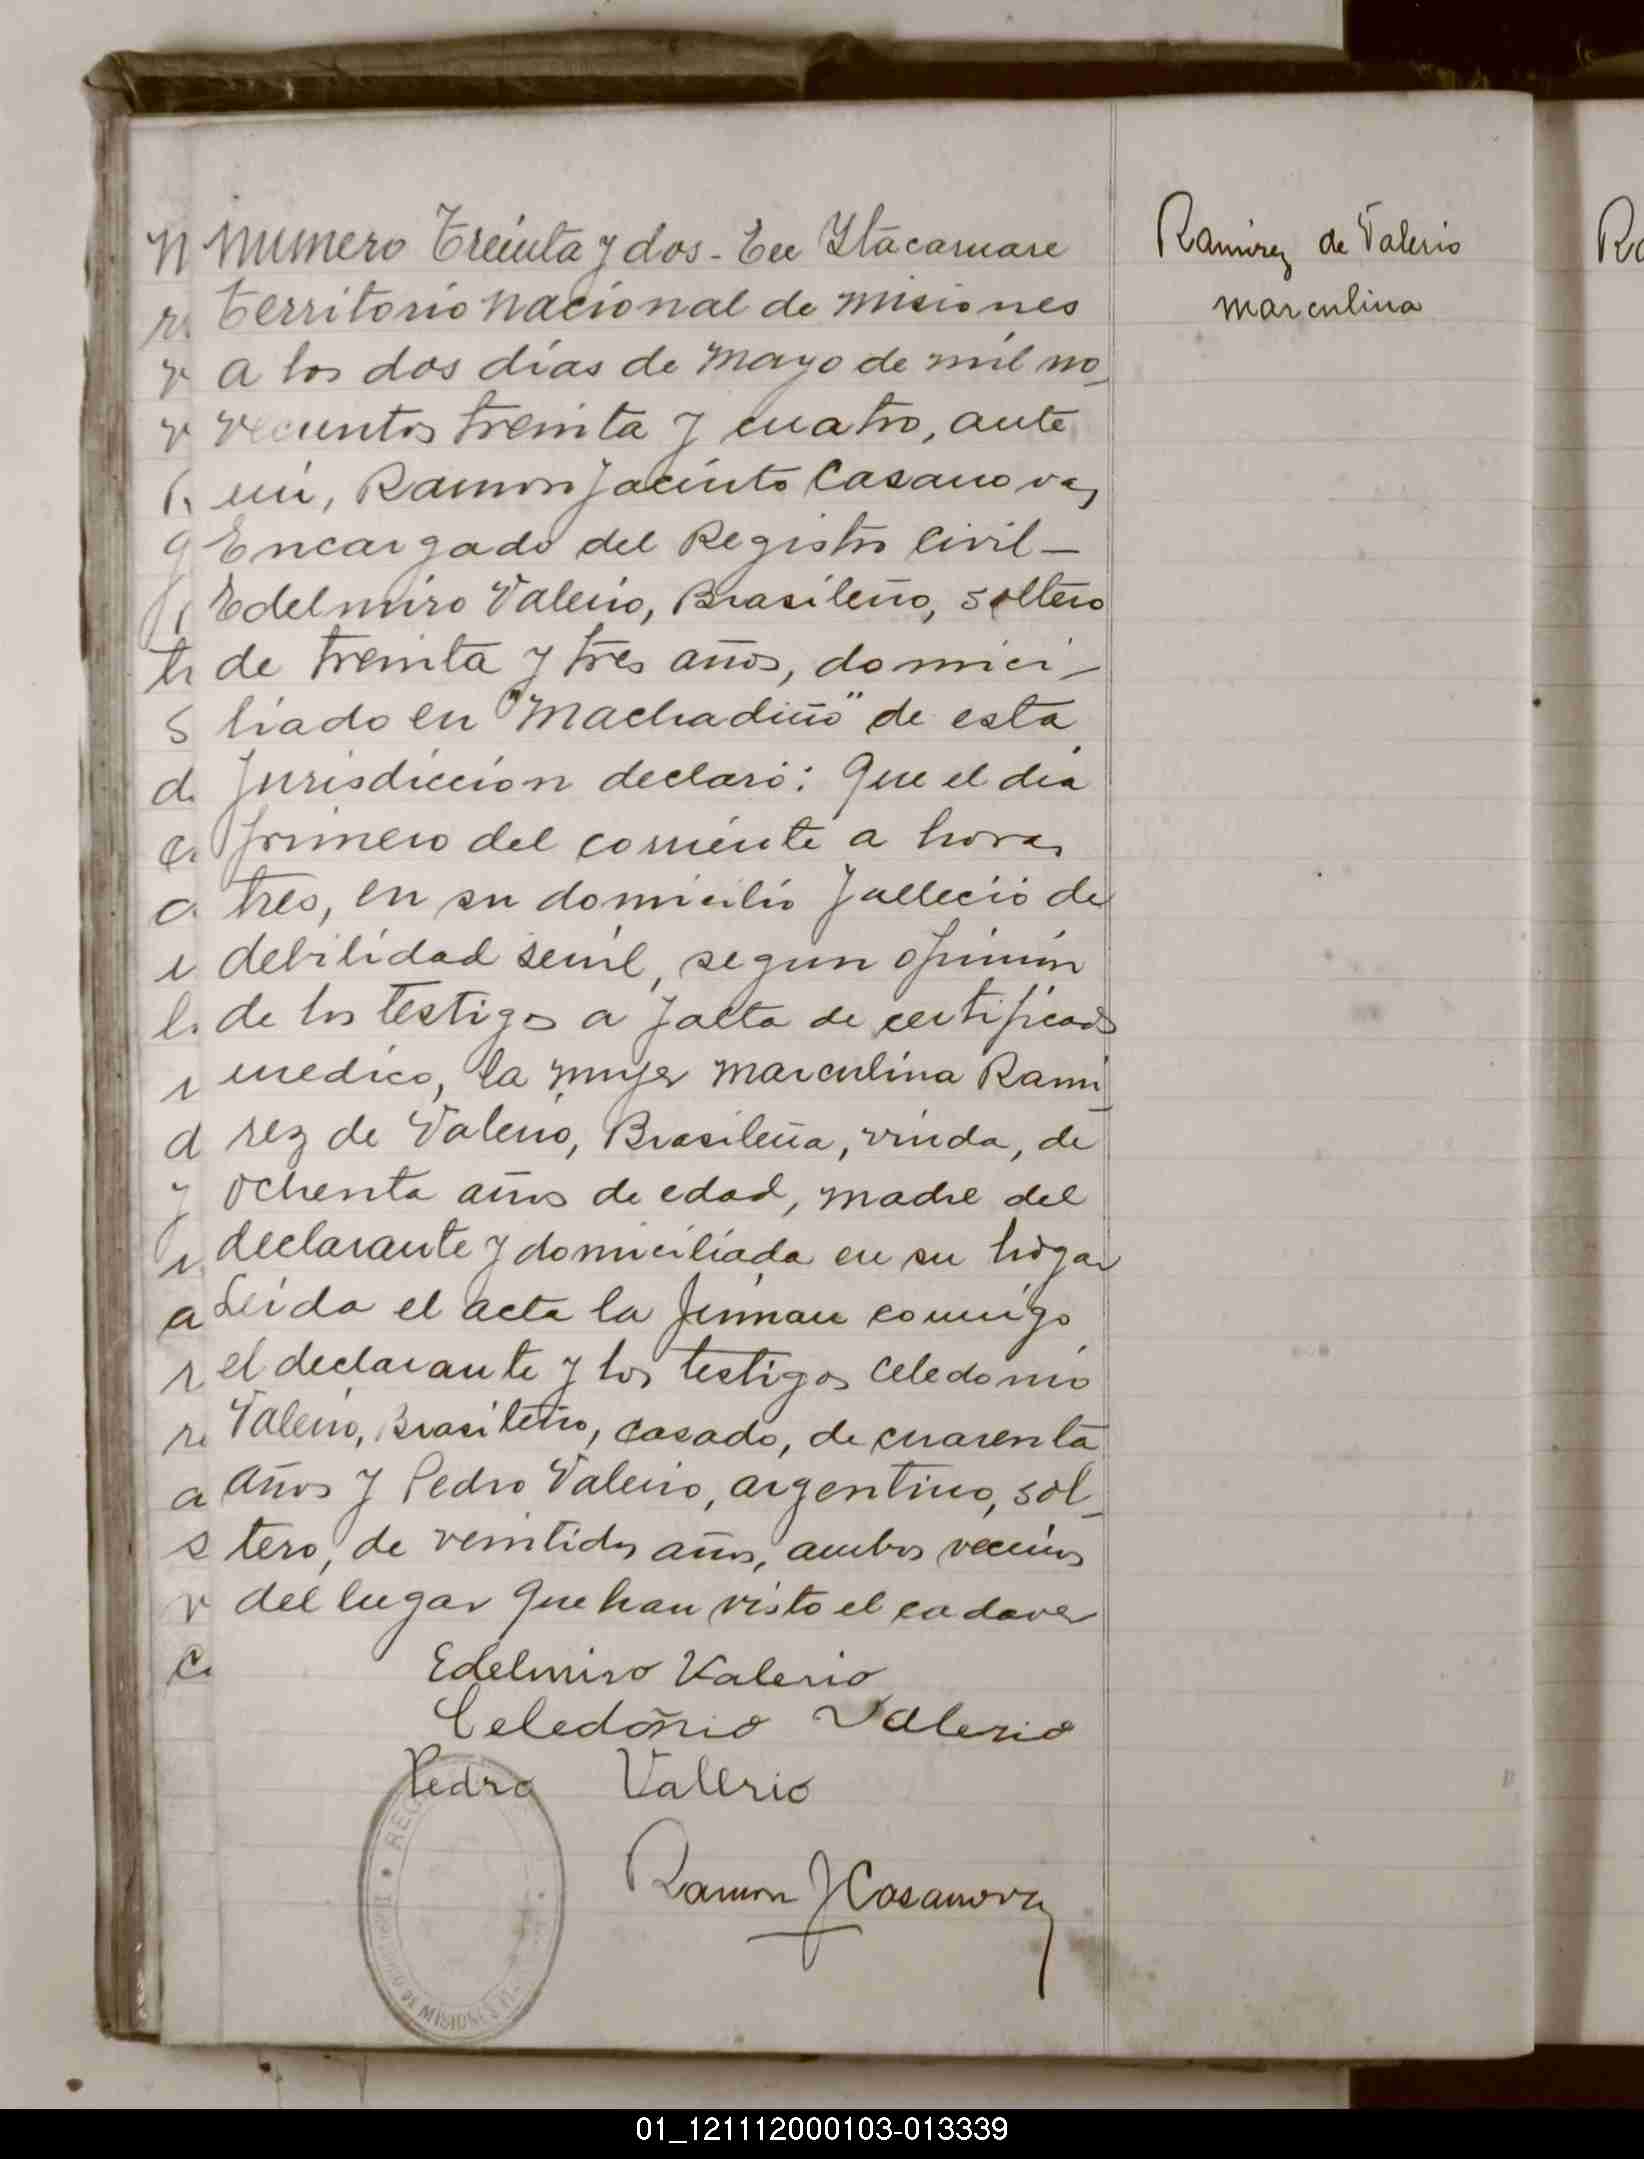 Numero Treinta y dos - En Ytacaruare
territorio nacional de misiones
a los dos días de Mayo de mil no-
vecientos treinta y cuatro, ante
mi, Ramon Jacinto Casanova,
Encargado del Registro Civil -
Edelmiro Valerio, Brasileño, soltero
de treinta y tres años, domici-
liado en "Machadiño" de esta
Jurisdicción declaró: Que el día
primero del corriente a horas
tres, en su domicilio falleció de
debilidad senil, segun opinión
de los testigos a falta de certificado
medico, la mujer Marculina Rami
rez de Valerio, Brasileña, viuda, de
ochenta años de edad, madre del
declarante y domiciliada en su hogar
Leida el acta la firman conmigo
el declarante y los testigos Celedonio
Valerio, Brasileño, casado, de cuarenta
años y Pedro Valerio, argentino, sol-
tero, de veintidos años, ambos vecinos
del lugar que han visto el cadaver
Edelmiro Valerio
Celedoñio Valerio
Pedro Valerio
Ramon J Casanova
REG
MISIONES
Ramirez de Valerio
Marculina
01_121112000103-013339